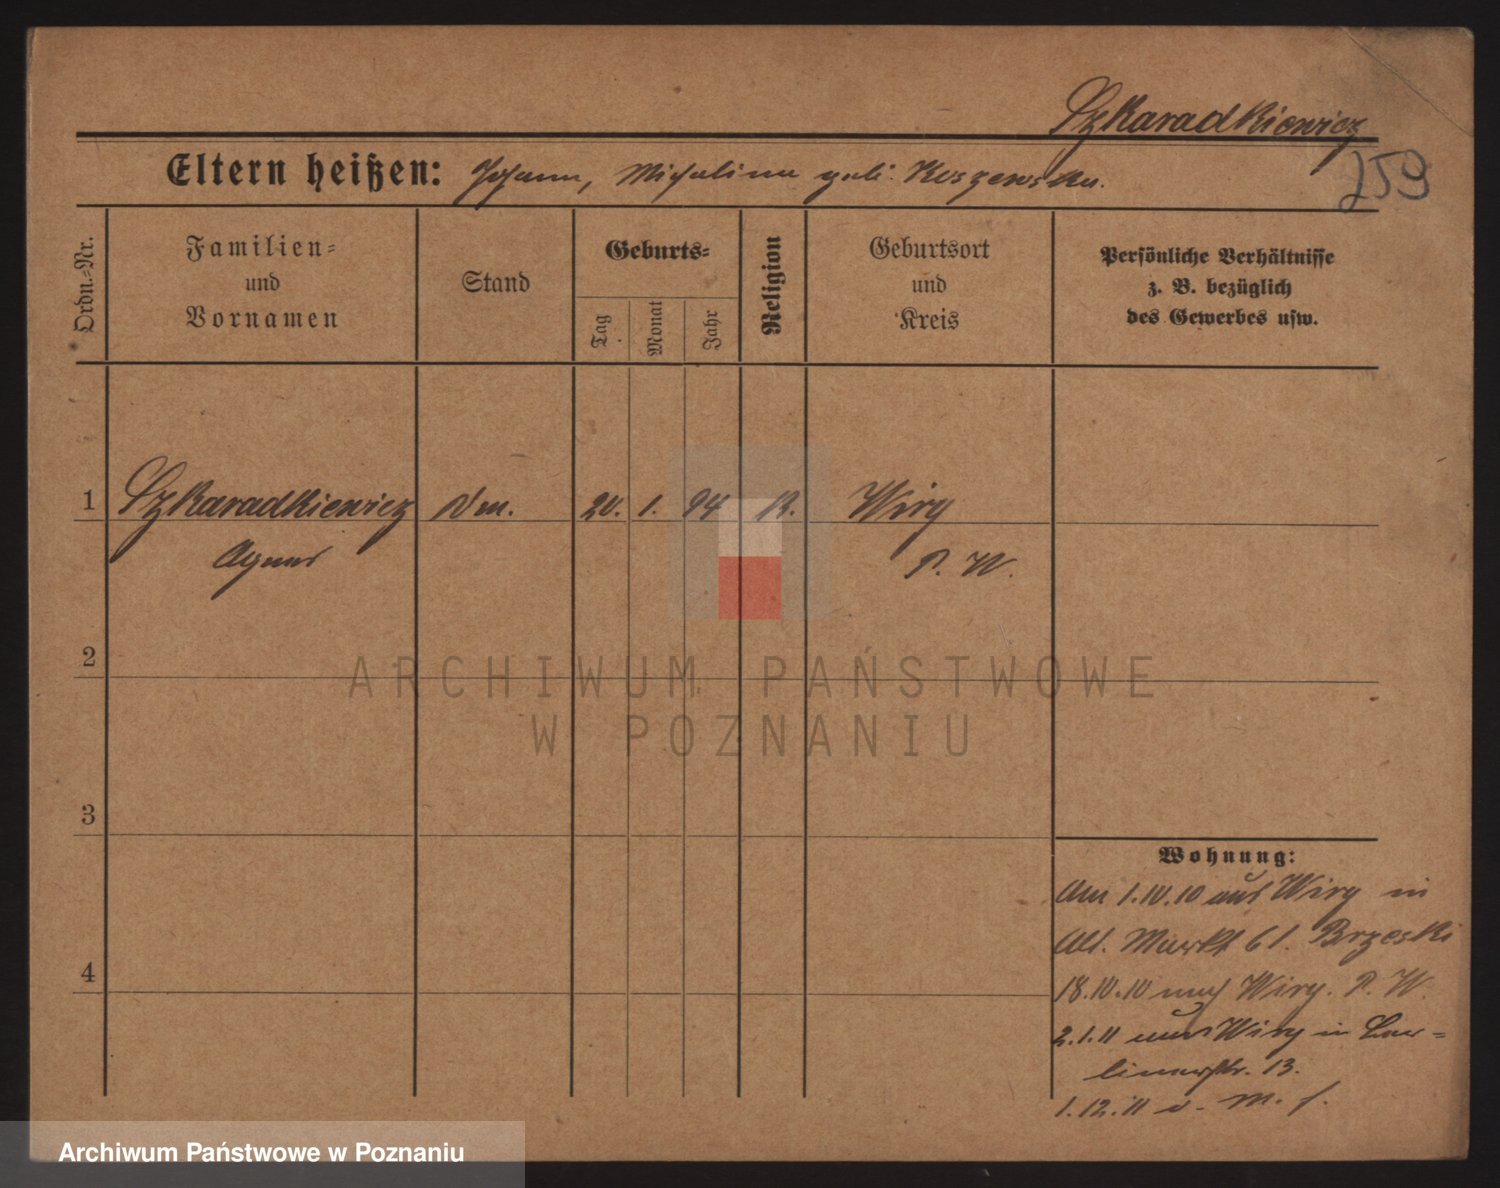 Szkaradkiewicz
Eltern heißen: Johann, Michalina geb. Koszewska.
259
Ordn.=Nr.
Familien=
und
Vornamen
Stand
Geburts=
Tag
Monat
Jahr
Religion
Geburtsort
und
Kreis
Persönliche Verhältnisse
z. B. bezüglich
des Gewerbes usw.
1 Szkaradkiewicz 20. 1. 94 Wiry
Agnes P. W.
2
3
4
Wohnung:
Am 1.10.10 aus Wiry in
Alt. Markt 61. Brzeski
18.10.10 nach Wiry. P. W.
2.1.11 aus Wiry in Ber=
linerstr. 13.
1.12.11
ARCHIWUM PAŃSTWOWE
W POZNANIU
Archiwum Państwowe w Poznaniu